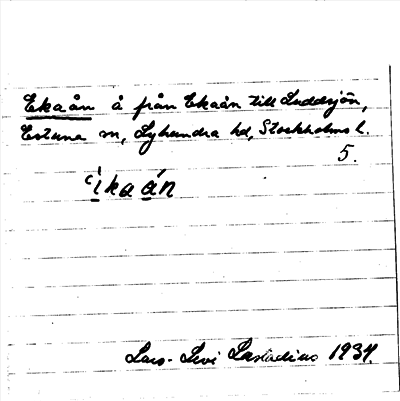 Ekaån å från Ekaån till Luddsjön,
Estuna sn, Lyhundra hd, Stockholms l.
5.
ˈi̱kaa̱´n
Lars-Levi Læstadius 1934.